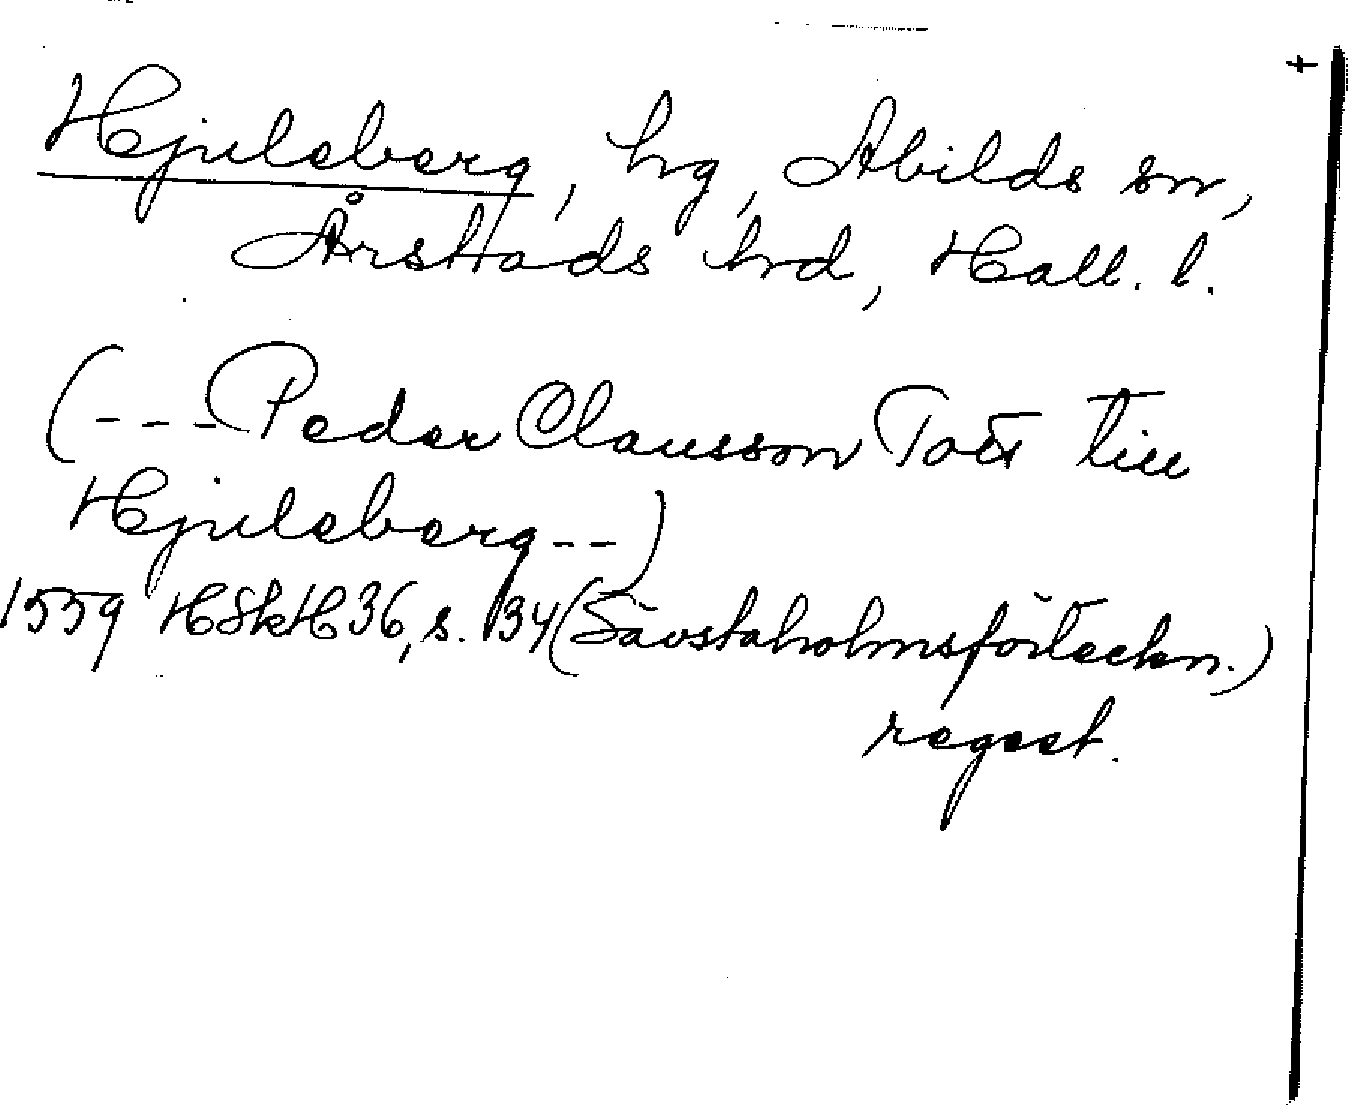 Hjuleberg, hg, Abilds sn,
Årstads hrd, Hall. l.
(---Peder Clausson Tott till
Hjuleberg--)
1559 HSkH 36, s. 134 (Sävstaholmsförteckn.)
regest.